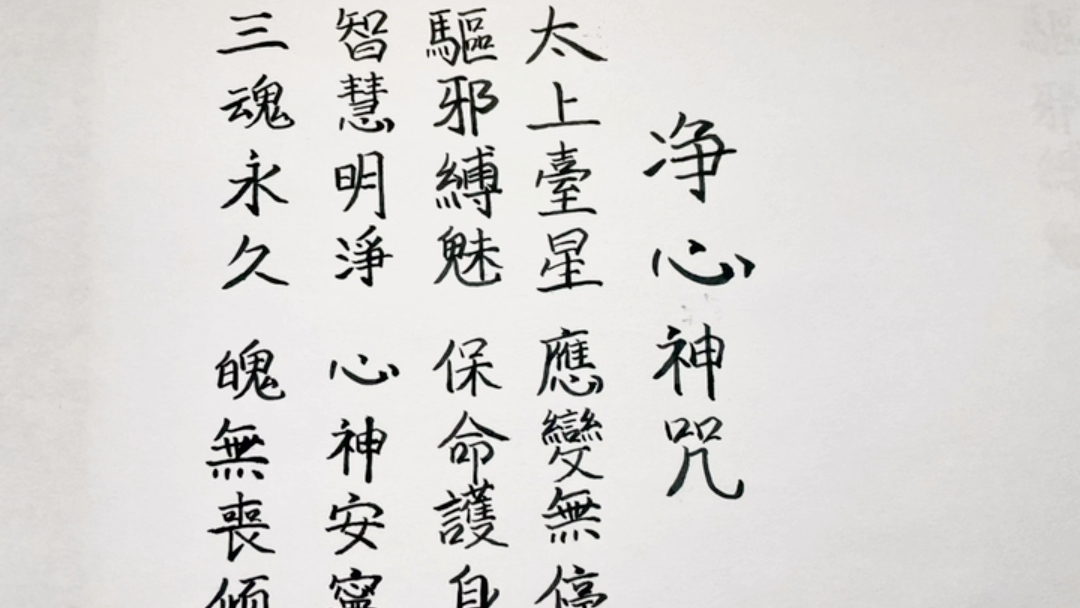 净心神咒
太上臺星 應變無停
驅邪縛魅 保命護身
智慧明淨 心神安寧
三魂永久 魄無喪倾